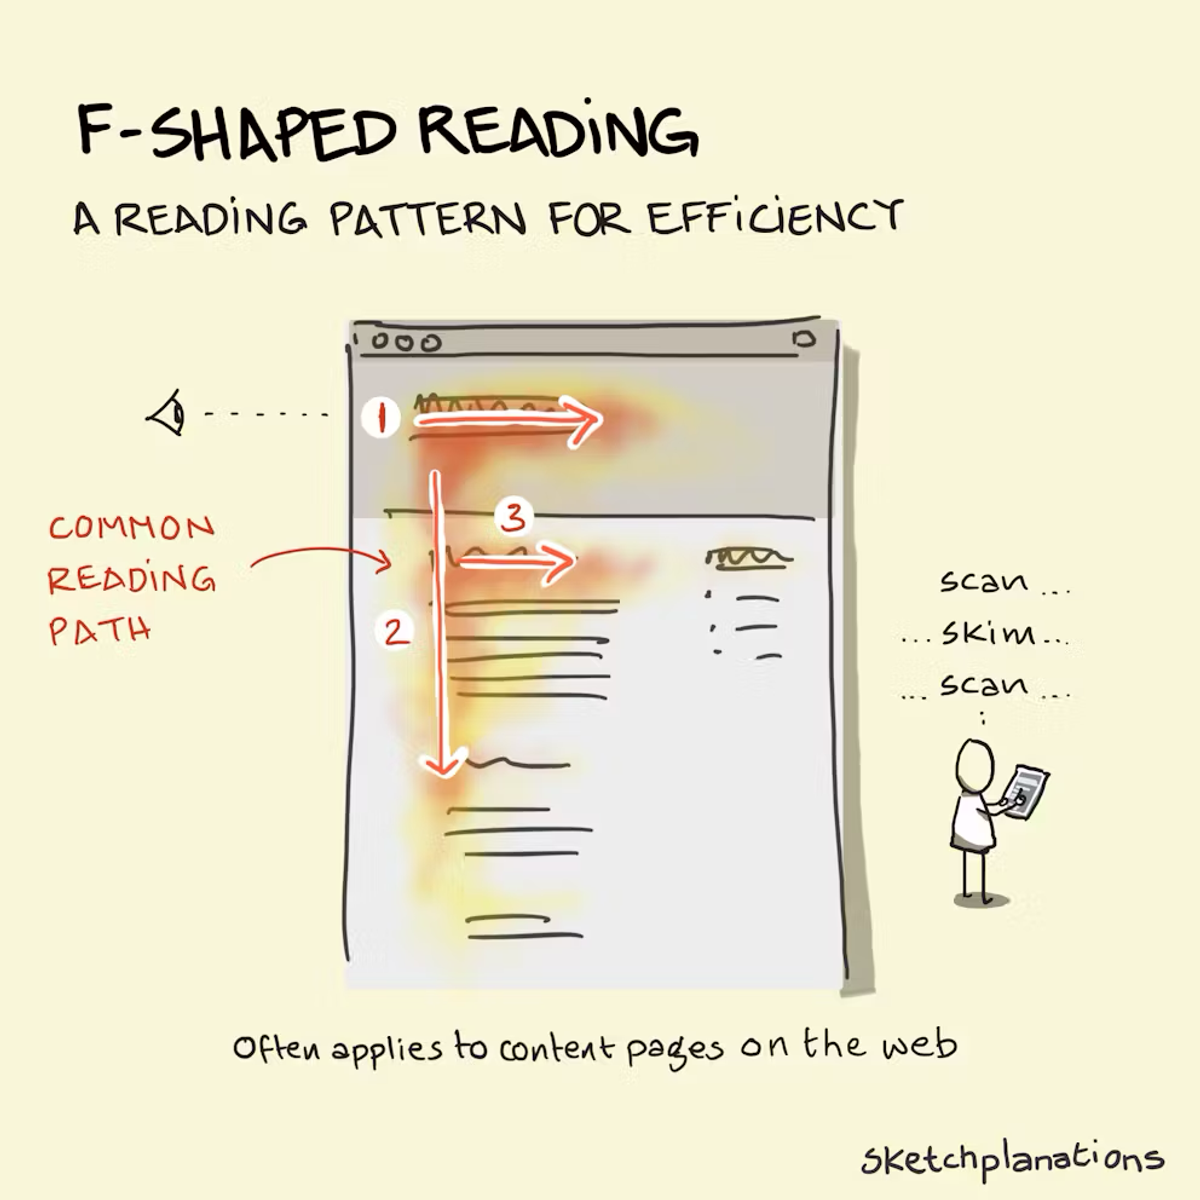 F-SHAPED READING
A READING PATTERN FOR EFFICIENCY
1
3
COMMON
READING
PATH
2
scan ...
... skim ...
... scan ...
Often applies to content pages on the web
sketchplanations